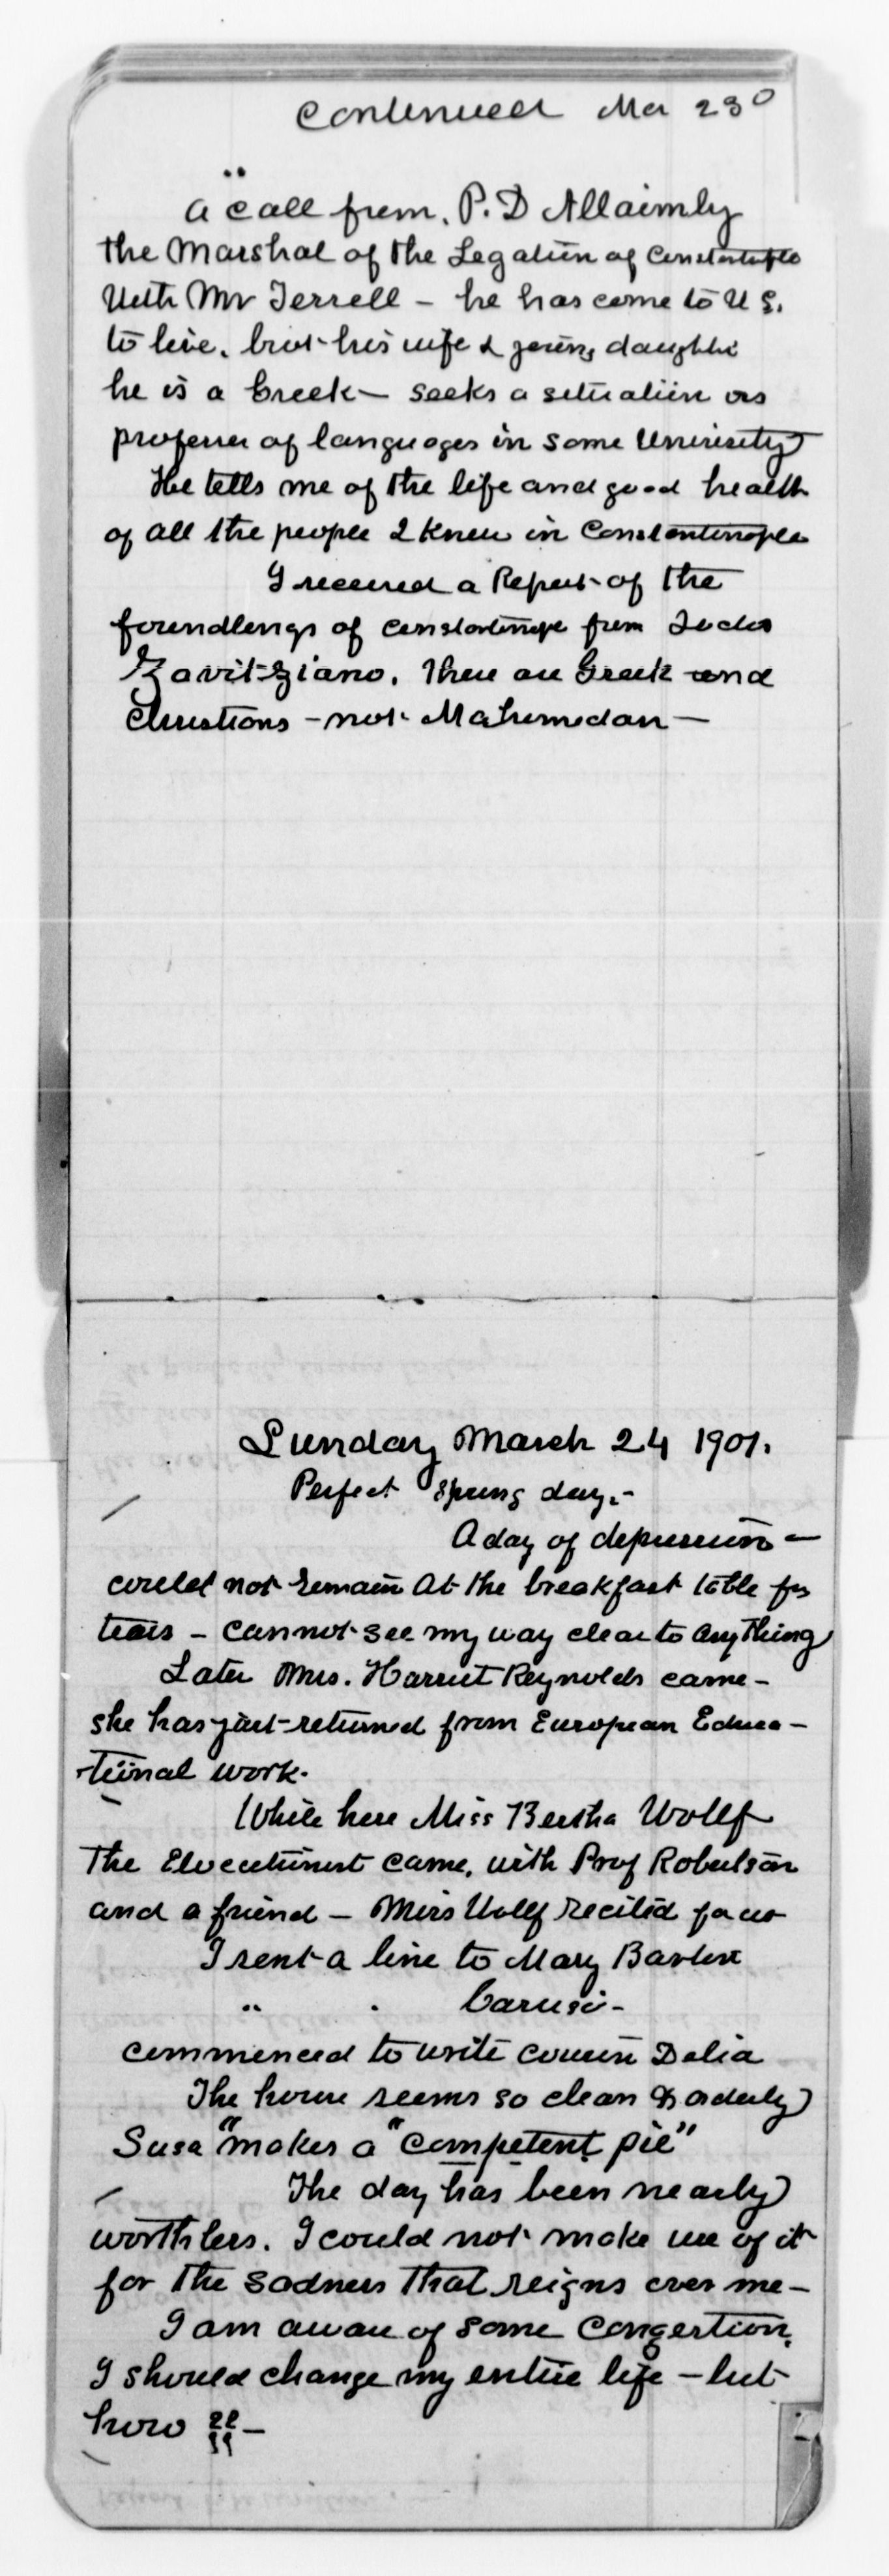 Continued Mar 23°
A call from, P. D
the Marshal of the Legation of Constantinople
With Mr Terrell - he has come to U S.
to live. but his wife & young daughter
he is a Greek - seeks a situation as
professor of languages in some University
He tells me of the life and good health
of all the people I knew in Constantinople
I received a Report of the
foundlings of Constantinople from
Zavitziano. These are Greek and
Christians - not Mahomedan -
Sunday March 24 1901.
Perfect Spring day. -
A day of depression -
could not remain at the breakfast table for
tears - cannot see my way clear to anything
Later Mrs. Harriet Reynolds came -
she has just returned from European Educa -
tional work.
While here Miss Bertha Wollf
The Elocutionist came, with Prof Robertson
and a friend - Miss Wollf recited for us
I sent a line to Mary Barton
" " Caruso -
commenced to write cousin Delia
The house seems so clean & orderly
Susa "makes a "competent pie"
The day has been nearly
worthless. I could not make use of it
for the sadness that reigns over me -
I am aware of some congestion.
I should change my entire life - but
how ?? -